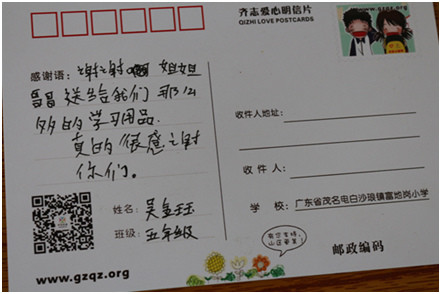 齐志爱心明信片
QIZHI LOVE POSTCARDS
www.gzqz.org
感谢语:谢谢 姐姐
哥哥送给我们那么
多的学习用品.
真的很感谢
你们。
姓名:吴金珏
班级:五年级
www.gzqz.org
收件人地址:
收 件 人:
学 校:广东省茂名电白沙琅镇富地岗小学
有您支持,
山区更美!
邮政编码